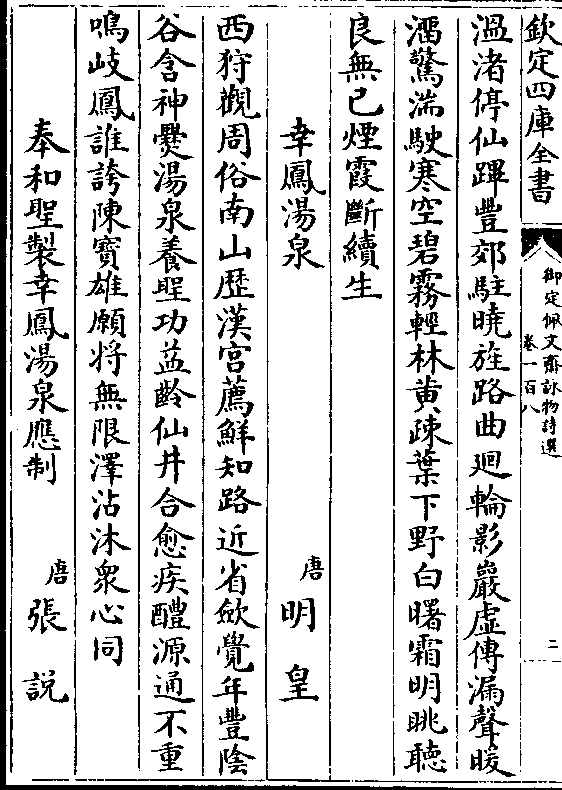 欽定四庫全書
御定佩文齋詠物詩選
卷一百八
二
溫渚停仙蹕豐郊駐曉旌路曲廻輪影巖虛傳漏聲暖
溜驚湍駛寒空碧霧輕林黄疎葉下野白曙霜明眺聽
良無已煙霞斷續生
幸鳳湯泉
唐 明皇
西狩觀周俗南山歷漢宫薦鮮知路近省斂覺年豐陰
谷含神爨湯泉養聖功益齡仙井合愈疾醴源通不重
鳴岐鳳誰誇陳寶雄願将無限澤沾沐衆心同
奉和聖製幸鳳湯泉應制
唐 張說